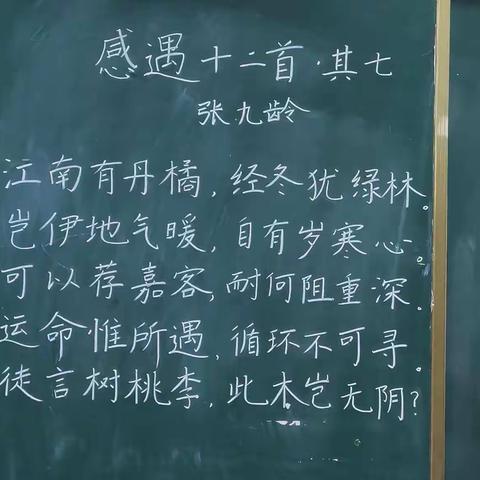 感遇十二首·其七
张九龄
江南有丹橘，经冬犹绿林。
岂伊地气暖，自有岁寒心。
可以荐嘉客，耐何阻重深。
运命惟所遇，循环不可寻。
徒言树桃李，此木岂无阴？